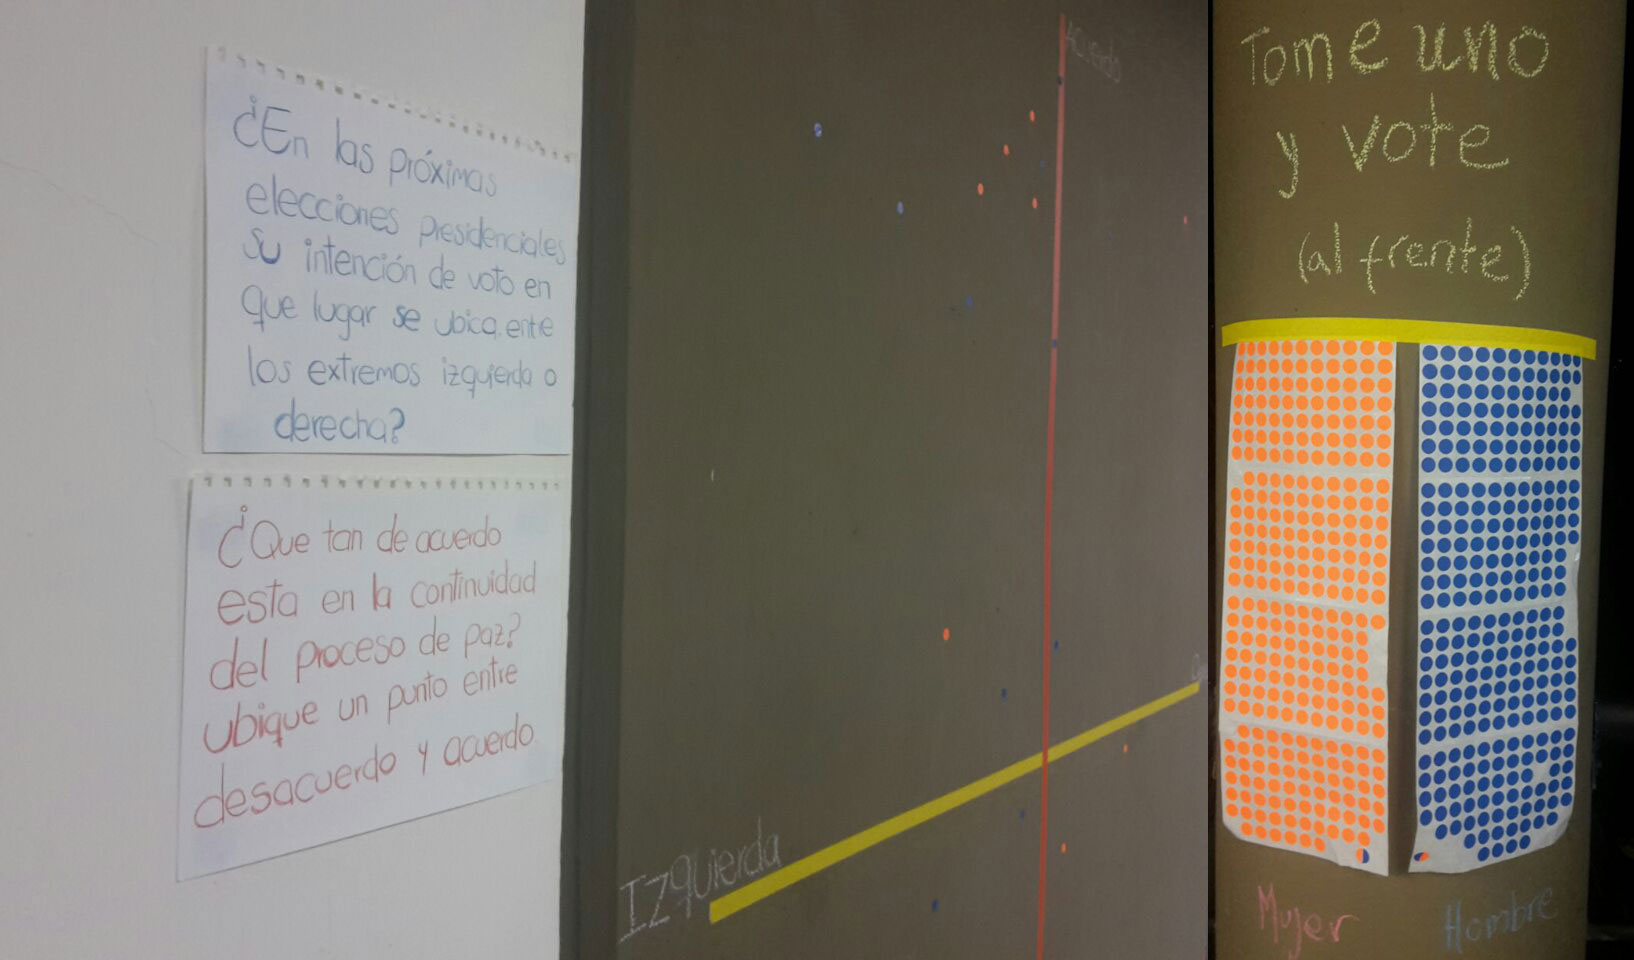 ¿En las próximas
elecciones presidenciales
su intención de voto en
que lugar se ubica, entre
los extremos izquierda o
derecha?
¿Que tan de acuerdo
esta en la continuidad
del proceso de paz?
ubique un punto entre
desacuerdo y acuerdo
Acuerdo
Izquierda
Tome uno
y vote
(al frente)
Mujer
Hombre